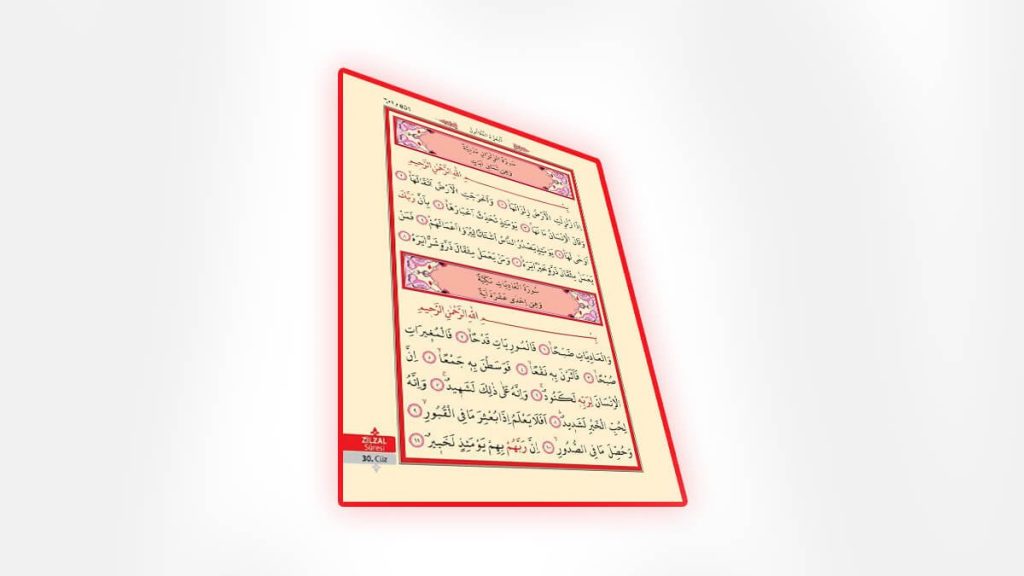 الجزء الثلاثون
سورة الزلزال مدنية
وهى ثمانى ايات
بِسْمِ اللّٰهِ الرَّحْمٰنِ الرَّحِيمِ
اِذَا زُلْزِلَتِ الْاَرْضُ زِلْزَالَهَاۙ ١ وَاَخْرَجَتِ الْاَرْضُ اَثْقَالَهَاۙ ٢
وَقَالَ الْاِنْسَانُ مَا لَهَاۚ ٣ يَوْمَئِذٍ تُحَدِّثُ اَخْبَارَهَاۙ ٤ بِاَنَّ رَبَّكَ
اَوْحٰى لَهَاۜ ٥ يَوْمَئِذٍ يَصْدُرُ النَّاسُ اَشْتَاتًا لِيُرَوْا اَعْمَالَهُمْۜ ٦ فَمَنْ
يَعْمَلْ مِثْقَالَ ذَرَّةٍ خَيْرًا يَرَهُۜ ٧ وَمَنْ يَعْمَلْ مِثْقَالَ ذَرَّةٍ شَرًّا يَرَهُ ٨
سُورَةُ الْعَادِيَاتِ مَكِّيَّةٌ
وَهِىَ اِحْدٰى عَشْرَةَ اٰيَةً
بِسْمِ اللّٰهِ الرَّحْمٰنِ الرَّحِيمِ
وَالْعَادِيَاتِ ضَبْحًاۙ ١ فَالْمُورِيَاتِ قَدْحًاۙ ٢ فَالْمُغِيرَاتِ
صُبْحًاۙ ٣ فَاَثَرْنَ بِهِ نَقْعًاۙ ٤ فَوَسَطْنَ بِهِ جَمْعًاۙ ٥ اِنَّ
الْاِنْسَانَ لِرَبِّهِ لَكَنُودٌۚ ٦ وَاِنَّهُ عَلٰى ذٰلِكَ لَشَهِيدٌۚ ٧ وَاِنَّهُ
لِحُبِّ الْخَيْرِ لَشَدِيدٌۜ ٨ اَفَلَا يَعْلَمُ اِذَا بُعْثِرَ مَا فِى الْقُبُورِۙ ٩
وَحُصِّلَ مَا فِى الصُّدُورِۙ ١٠ اِنَّ رَبَّهُمْ بِهِمْ يَوْمَئِذٍ لَخَبِيرٌ ١١
ZİLZAL
Sûresi
30. Cüz